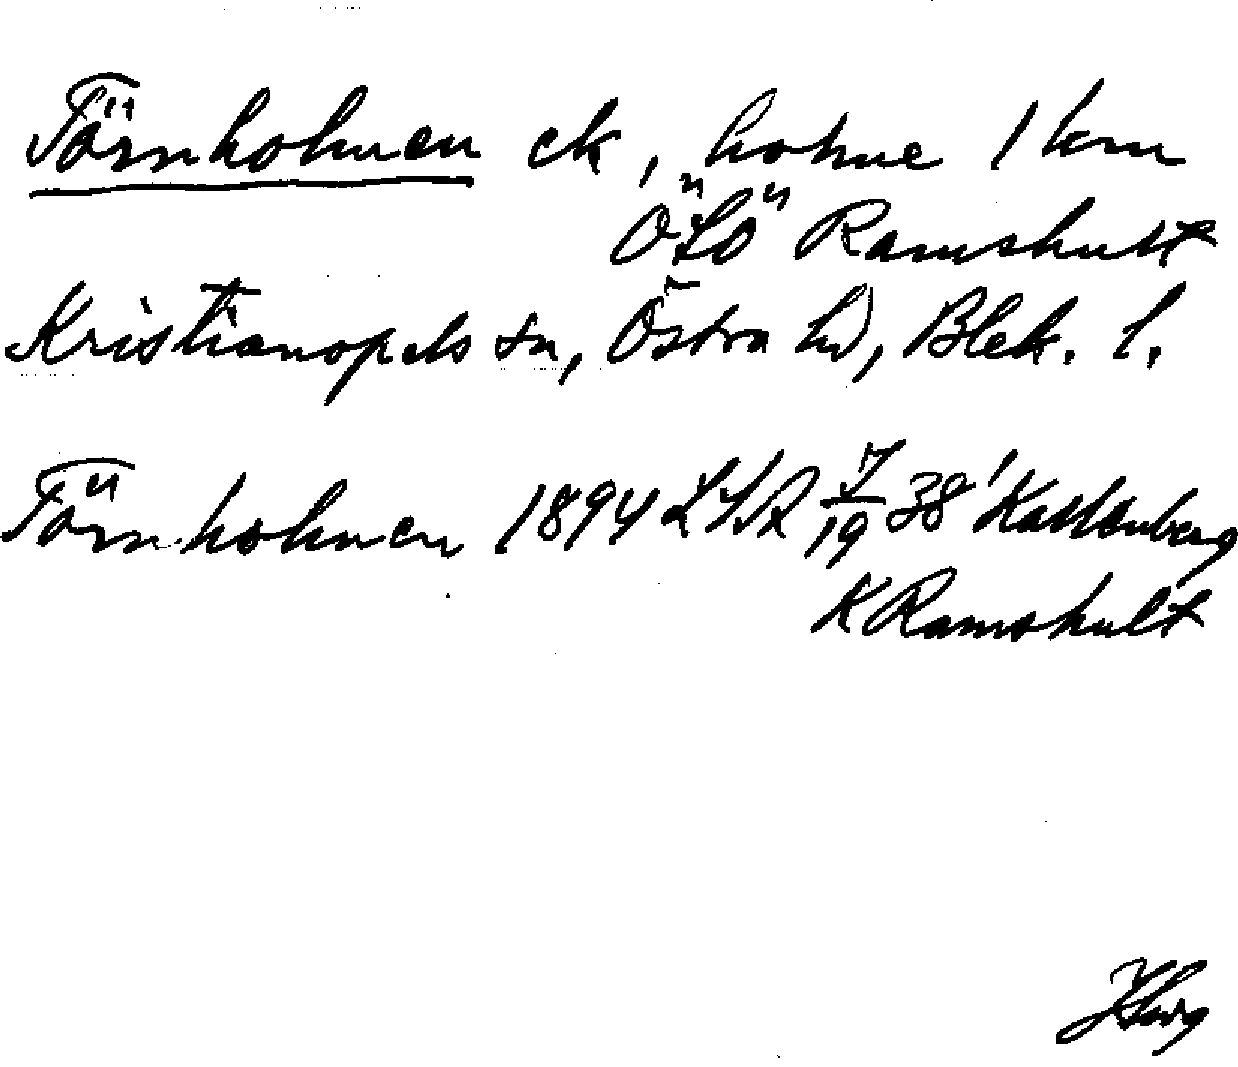 Törnholmen ek, holme 1 km
ÖSÖ Ramshult
Kristianopels sn, Östra hd, Blek. l.
Törnholmen 1894 LSA 7/19 38'
K Ramshult